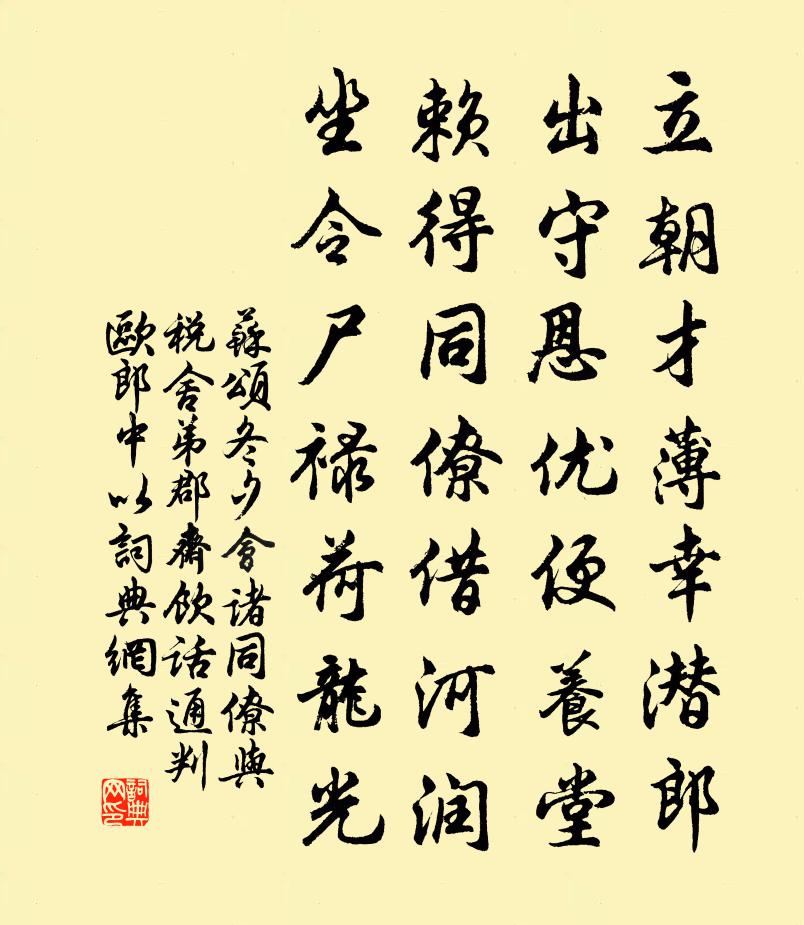 立朝才薄幸潜郎
出守恩优便養堂
赖得同僚借河润
坐令尸禄荷龍光
蘇頌冬夕會諸同僚與
税舍弟郡齋飲話通判
歐郎中以詞典網集
詞典网印